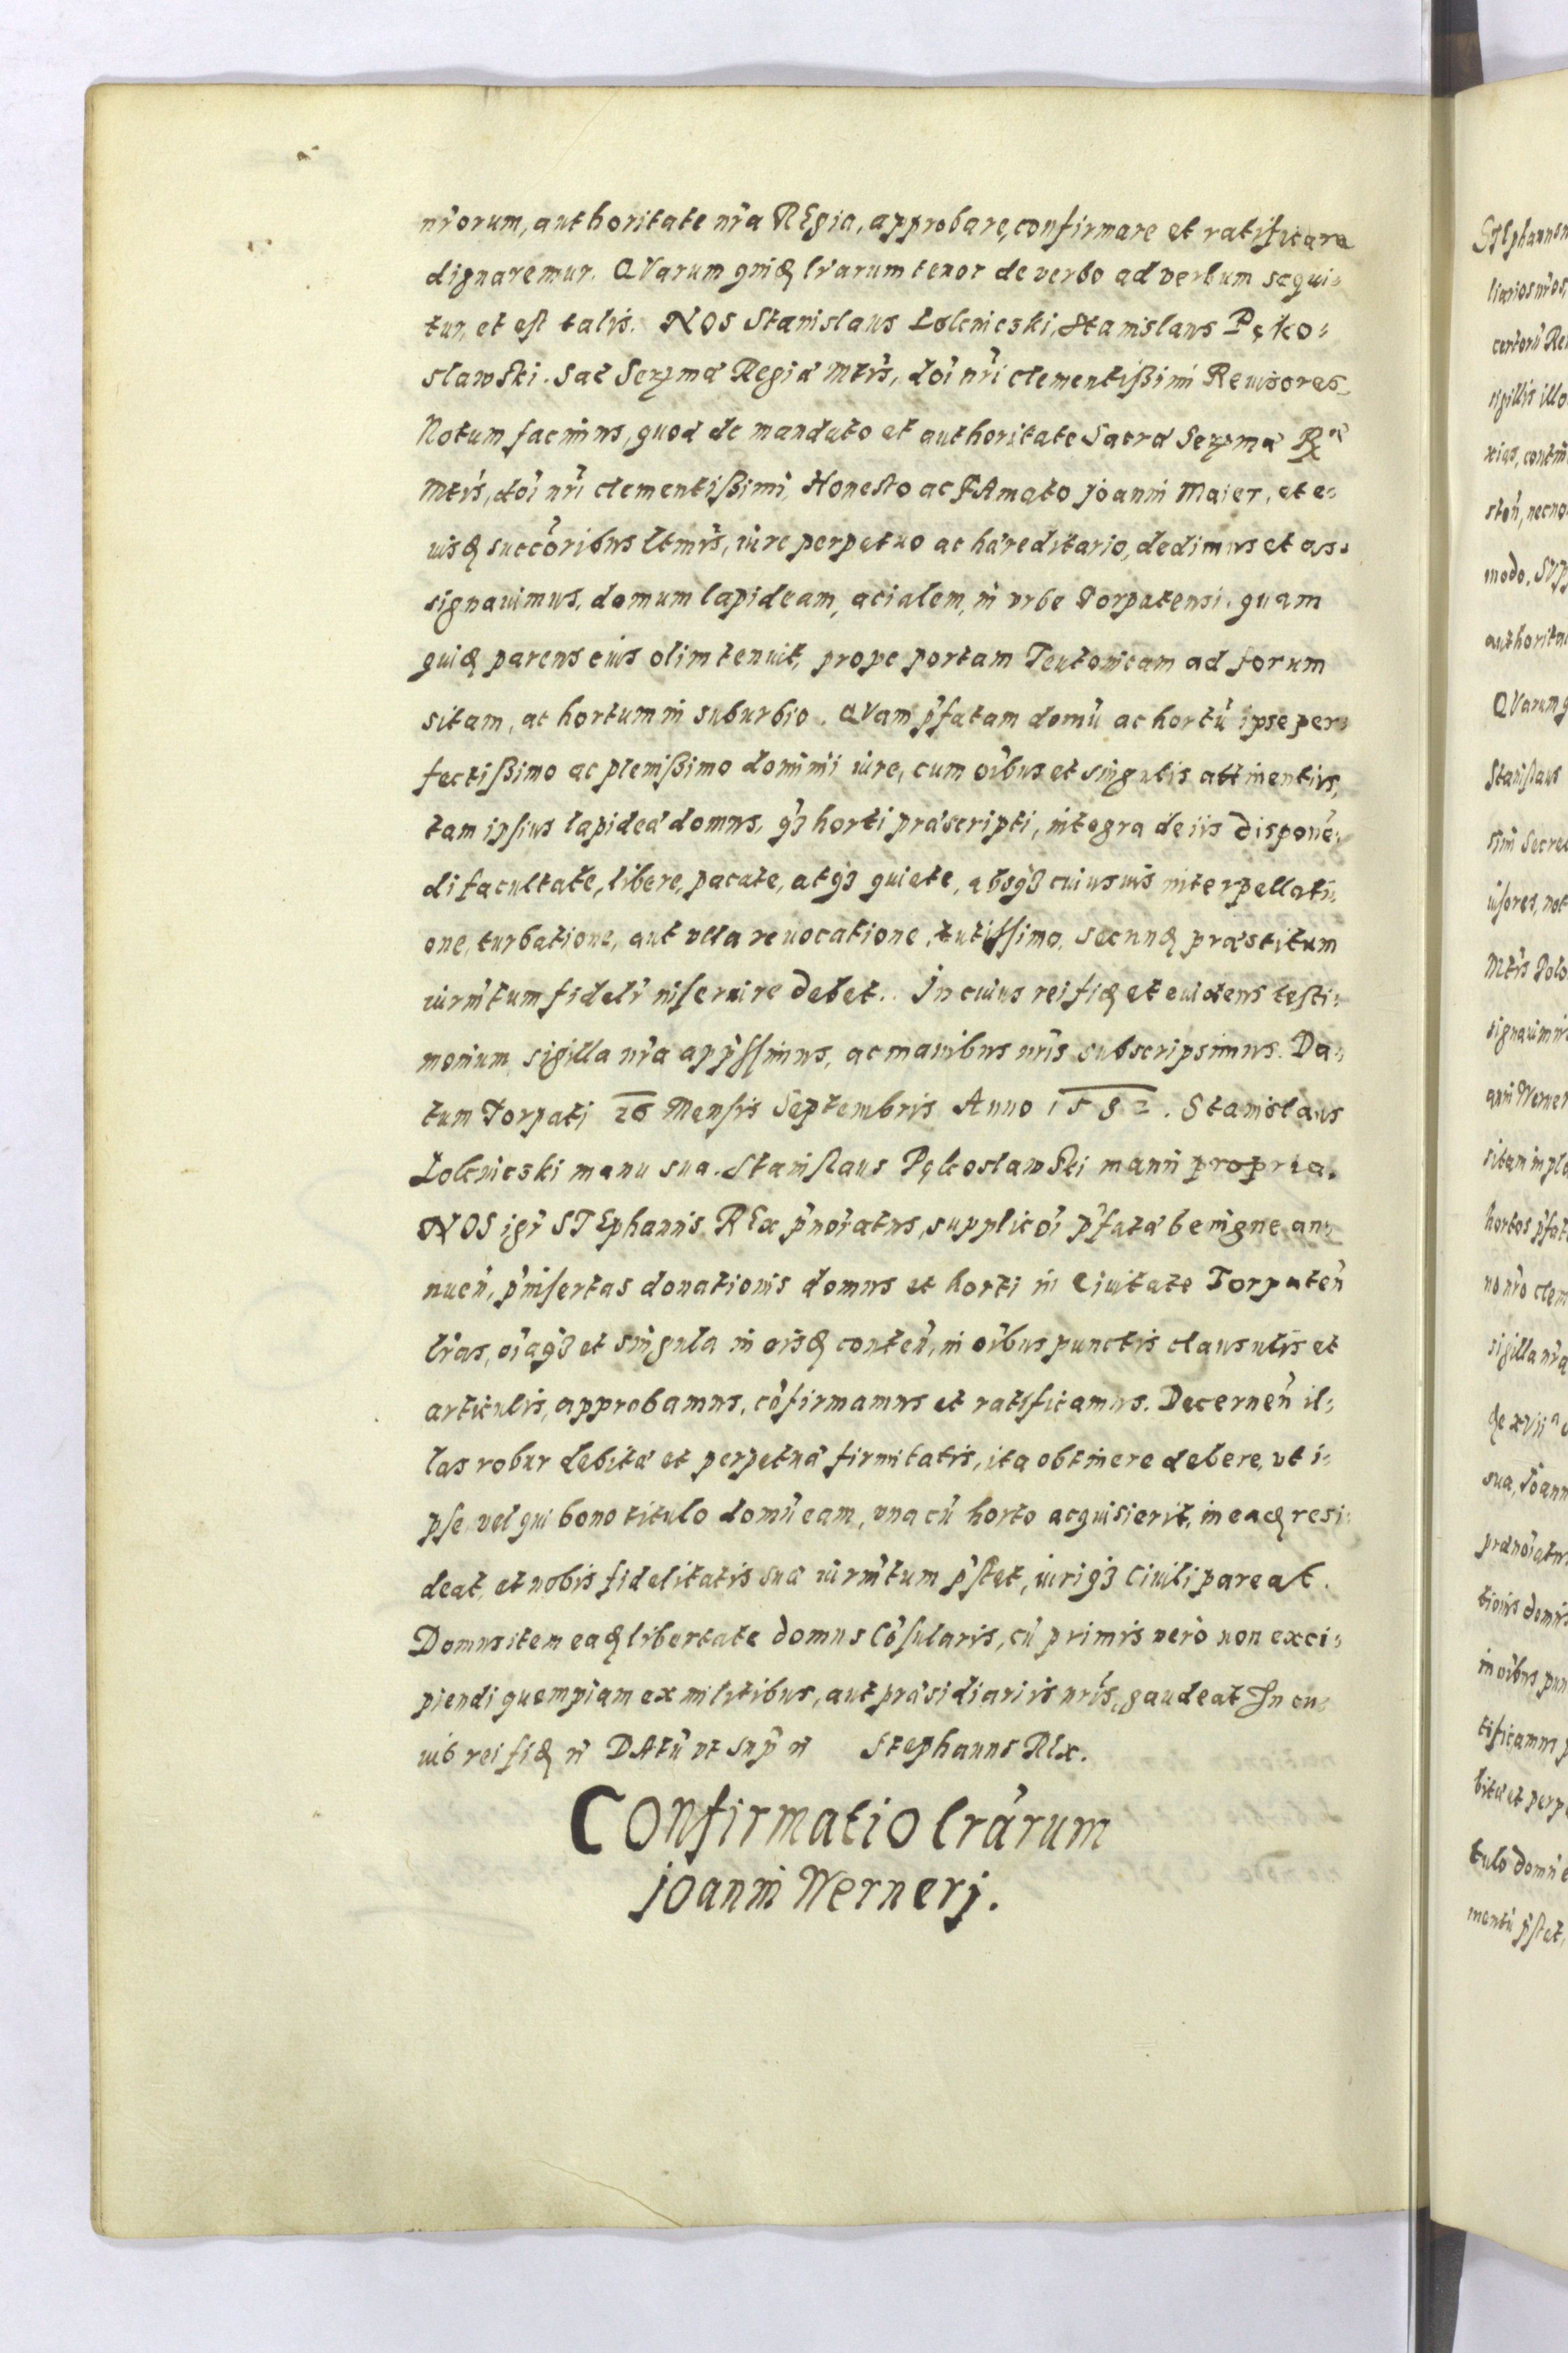 nr̃orum, authoritate nr̃a REgia, approbare, confirmare et ratificare
dignaremur. QVarum quidẽ lr̃arum tenor de verbo ad verbum sequi=
tur, et est talis. NOS Stanislaus Lolknieski, Stanislaus Pęko=
slawski. Sac Serṃæ Regiæ Mtĩs, doĩ nr̃i clementißimi Reuisores.
Notum facimus, quod de mandato et authoritate Sacræ Serṃæ Rꝫæ
Mtĩs, doĩ nr̃i clementißimi, Honesto ac FAmato Joanni Maier, et e=
iusdẽ succõribus ltmĩs, iure perpetuo ac hæreditario, dedimus et as=
signauimus, domum lapideam, acialem, in vrbe Dorpatensi. quam
quidẽ parens eius olim tenuit, prope portam Teutonicam ad forum
sitam, ac hortum in suburbio. QVam p̃fatam domũ ac hortũ ipse per=
fectißimo ac plenißimo dominii iure, cum oĩbus et singulis attinentiis,
tam ipsius lapideæ domus, qꝫ horti præscripti, integra de iis disponẽ=
di facultate, libere, pacate, atqꝫ quiete, absqꝫ cuiusuis interpellati=
one, turbatione, aut vlla reuocatione, tutissimo, secundẽ præstitum
iurm̃tum fideli inseruire debet. In cuius rei fidẽ et euidens testi=
monium, sigilla nr̃a app̃ssimus, ac manibus nr̃is subscripsimus. Da=
tum Dorpati 26 Mensis Septembris Anno 1582. Stanislaus
Lolknieski manu sua. Stanislaus Pękoslawski manu propria.
NOS igr̃ STEphanus REx p̃noĩatus, supplicõi p̃fatæ benigne an=
nueñ, p̃insertas donationis domus et horti in Ciuitate Torpateñ
lr̃as, oĩaqꝫ et singula in eisdẽ conteñ, in oĩbus punctis clausulis et
articulis, approbamus, cõfirmamus et ratificamus. Decerneñ il=
las robur debitæ et perpetuæ firmitatis, ita obtinere debere, vt i=
pse vel qui bono titulo domũ eam, vna cũ horto acquisierit, in eadẽ resi=
deat, et nobis fidelitatis suæ iurm̃tum p̃stet, iuriqꝫ Ciuili pareat.
Domus item eadẽ libertate domus Cõsularis, cũ primis verò non exci=
piendi quempiam ex militibus, aut præsidiariis nr̃is, gaudeat. In cu=
ius rei fidẽ ñ DAtũ vt sup̃ ñ Stephanus REx.
COnfirmatio lrãrum
Joanni Wernerj.